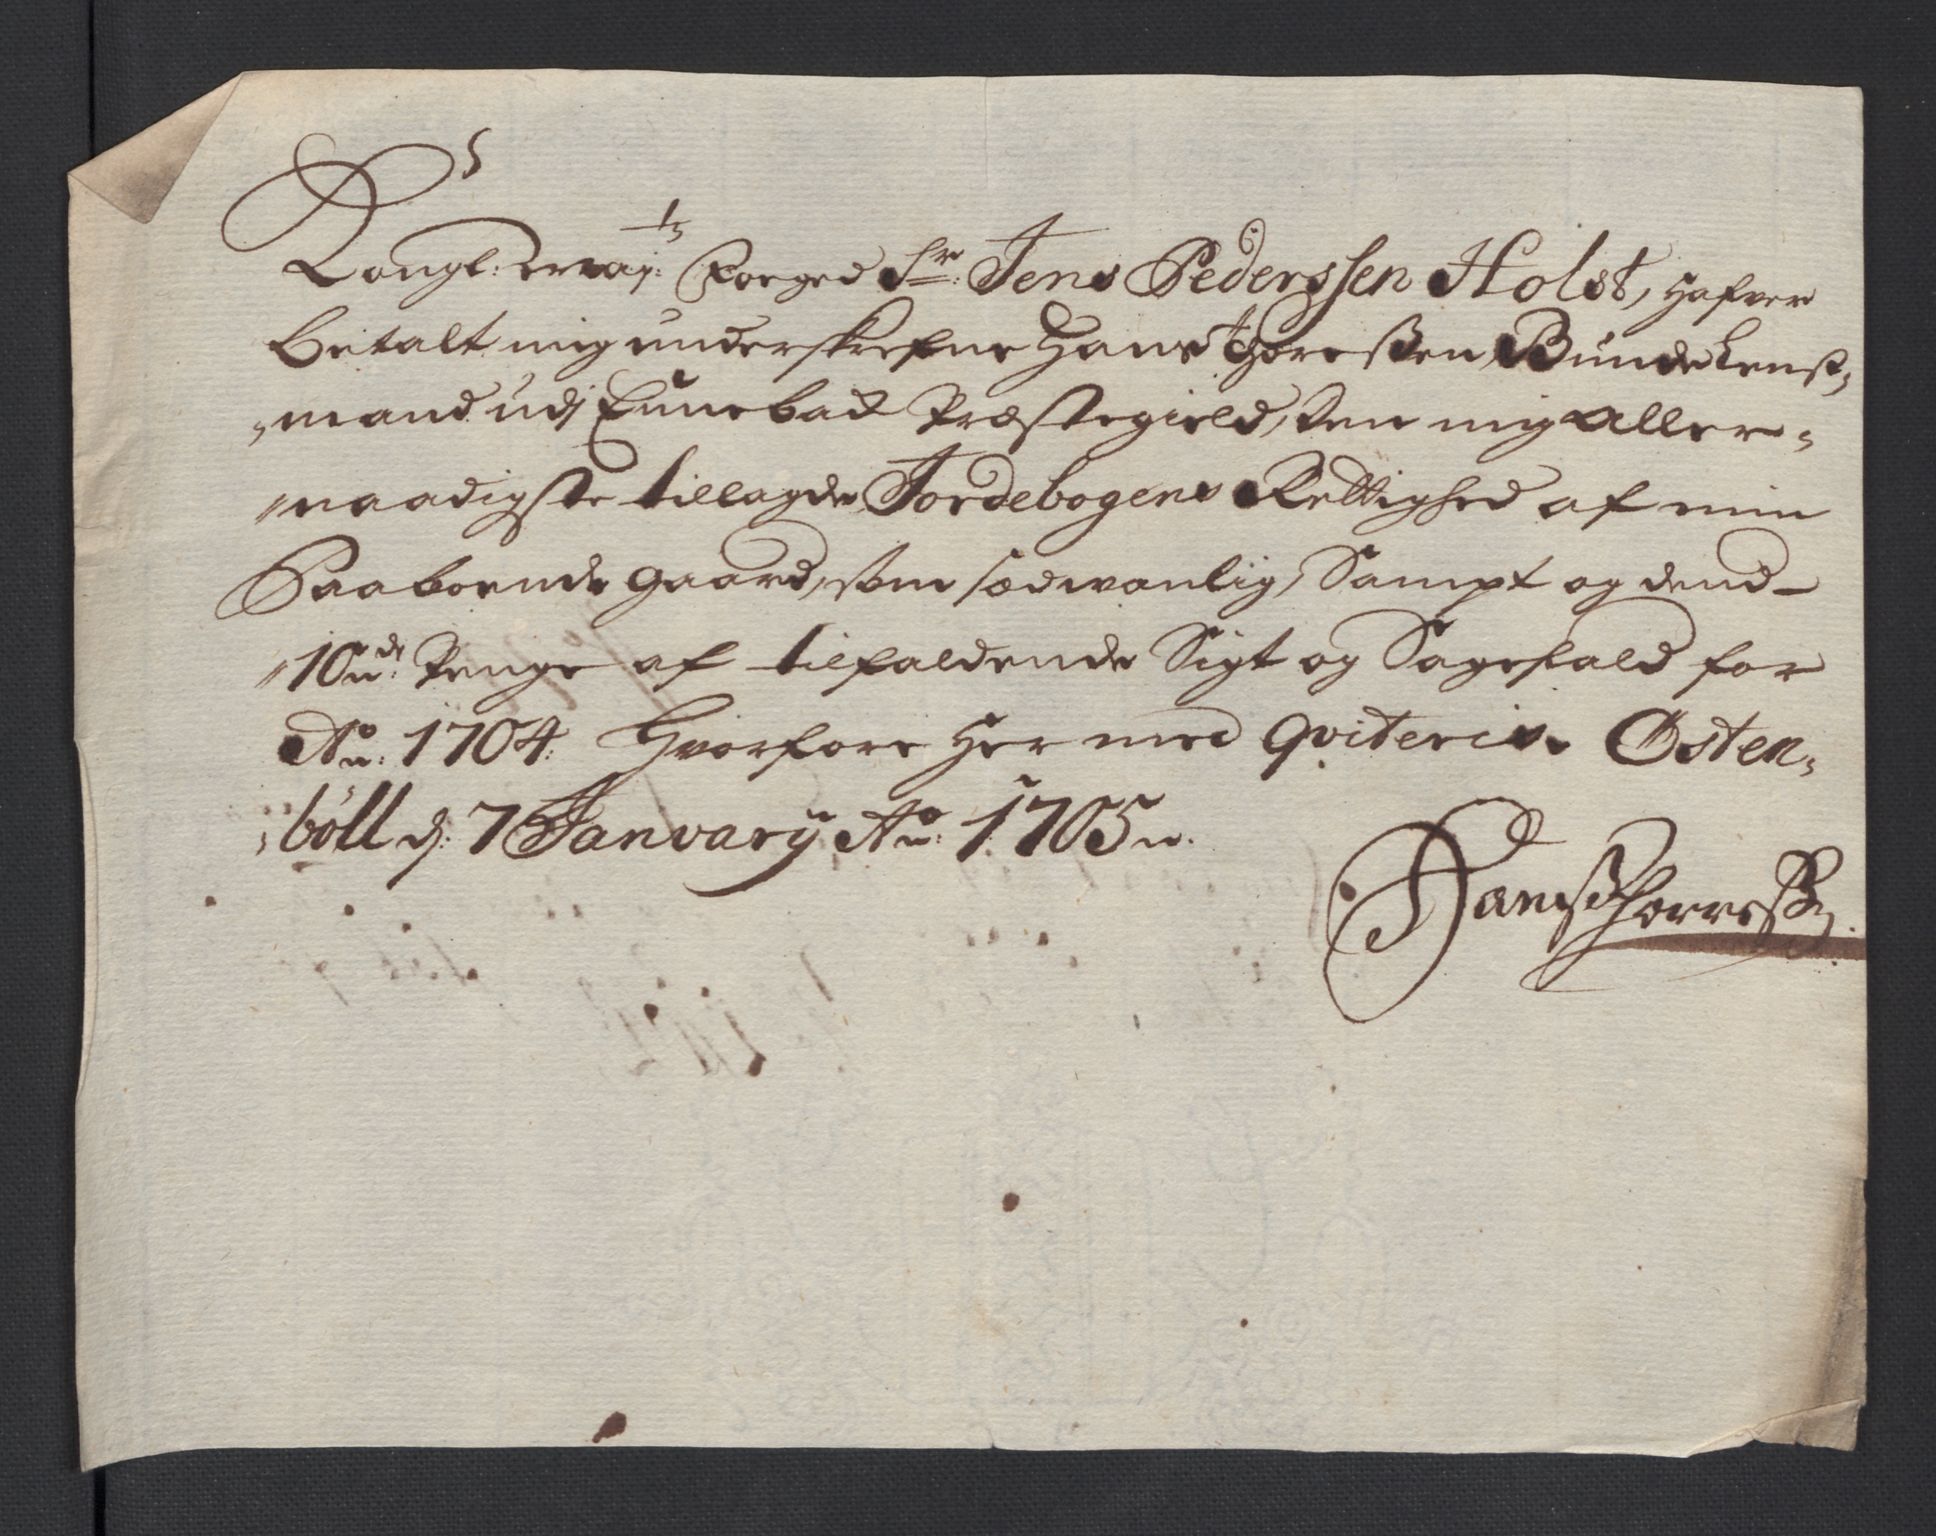 Kongl: May:ts Foeged Sr: Jens Pederssen Holst, hafver
betalt mig underskrefne Hans Thoressen Bunde Lens=
=mand udj Eunebad Præstegield, den mig Aller=
=naadigste tillagde Jordebogens Rettighed af min
Paaboende gaard, som sædvanlig, Sampt og dend
10de Penge af tilfaldende Sigt og Sagefald for
Ao: 1704. Hvorfore her med qviteris. Østen=
=böll d: 7 Januarij Ao: 1705.
Hans Thorressen